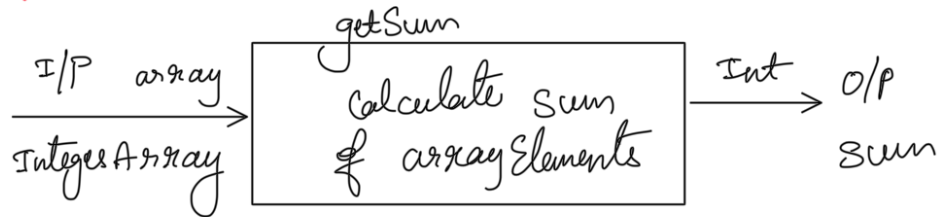 getSum
I/P array
IntegerArray
Calculate sum
of arrayElements
Int
O/P
sum